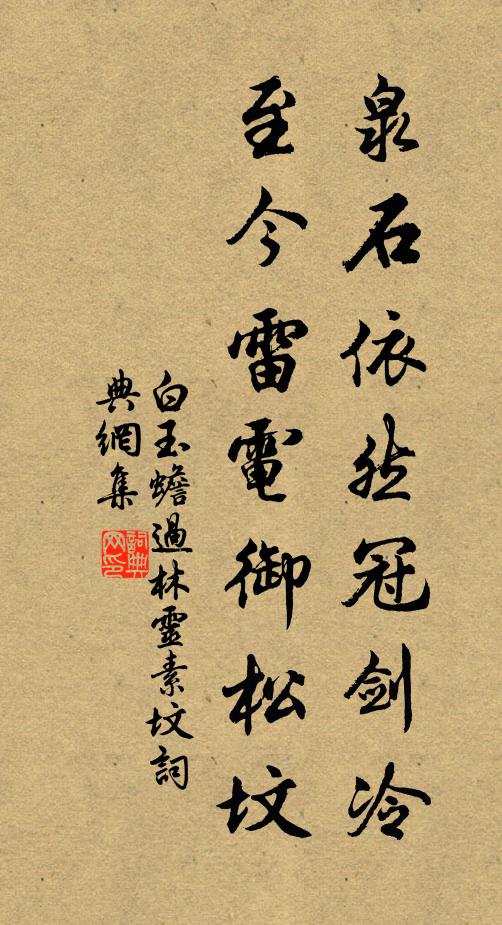 泉石依然冠剑冷
至今雷電御松坟
白玉蟾過林靈素坟詞
典網集
詞典网印